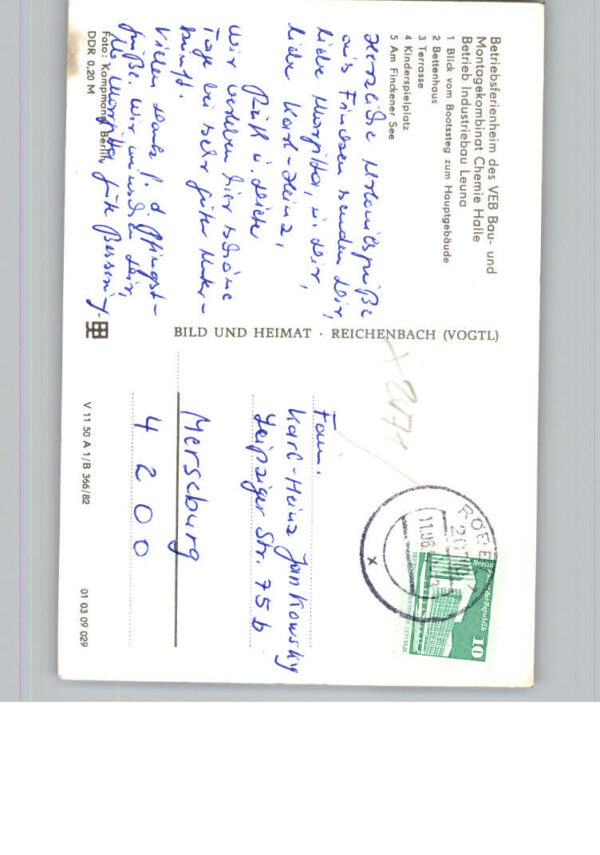 Betriebsferienheim des VEB Bau- und
Montagekombinat Chemie Halle
Betrieb Industriebau Leuna
1 Blick vom Bootssteg zum Hauptgebäude
2 Bettenhaus
3 Terrasse
4 Kinderspielplatz
5 Am Finckener See
Herzliche Urlaubsgrüße
aus Fincken senden Dir,
liebe Margitta, u. Dir,
lieber Karl-Heinz,
Ruth u. Dieter
Wir verleben hier schöne
Tage bei sehr guter Unter-
kunft.
Vielen Dank f. d. Pfingst-
grüße. Wir wünschen Dir,
Margitta, gute Besserung.
Foto: Kampmann, Berlin
DDR 0,20 M
BILD UND HEIMAT · REICHENBACH (VOGTL)
Fam.
Karl-Heinz Jankowsky
Leipziger Str. 75 b
Merseburg
4 2 0 0
V 11 50 A 1/B 366/82
01 03 09 029
10